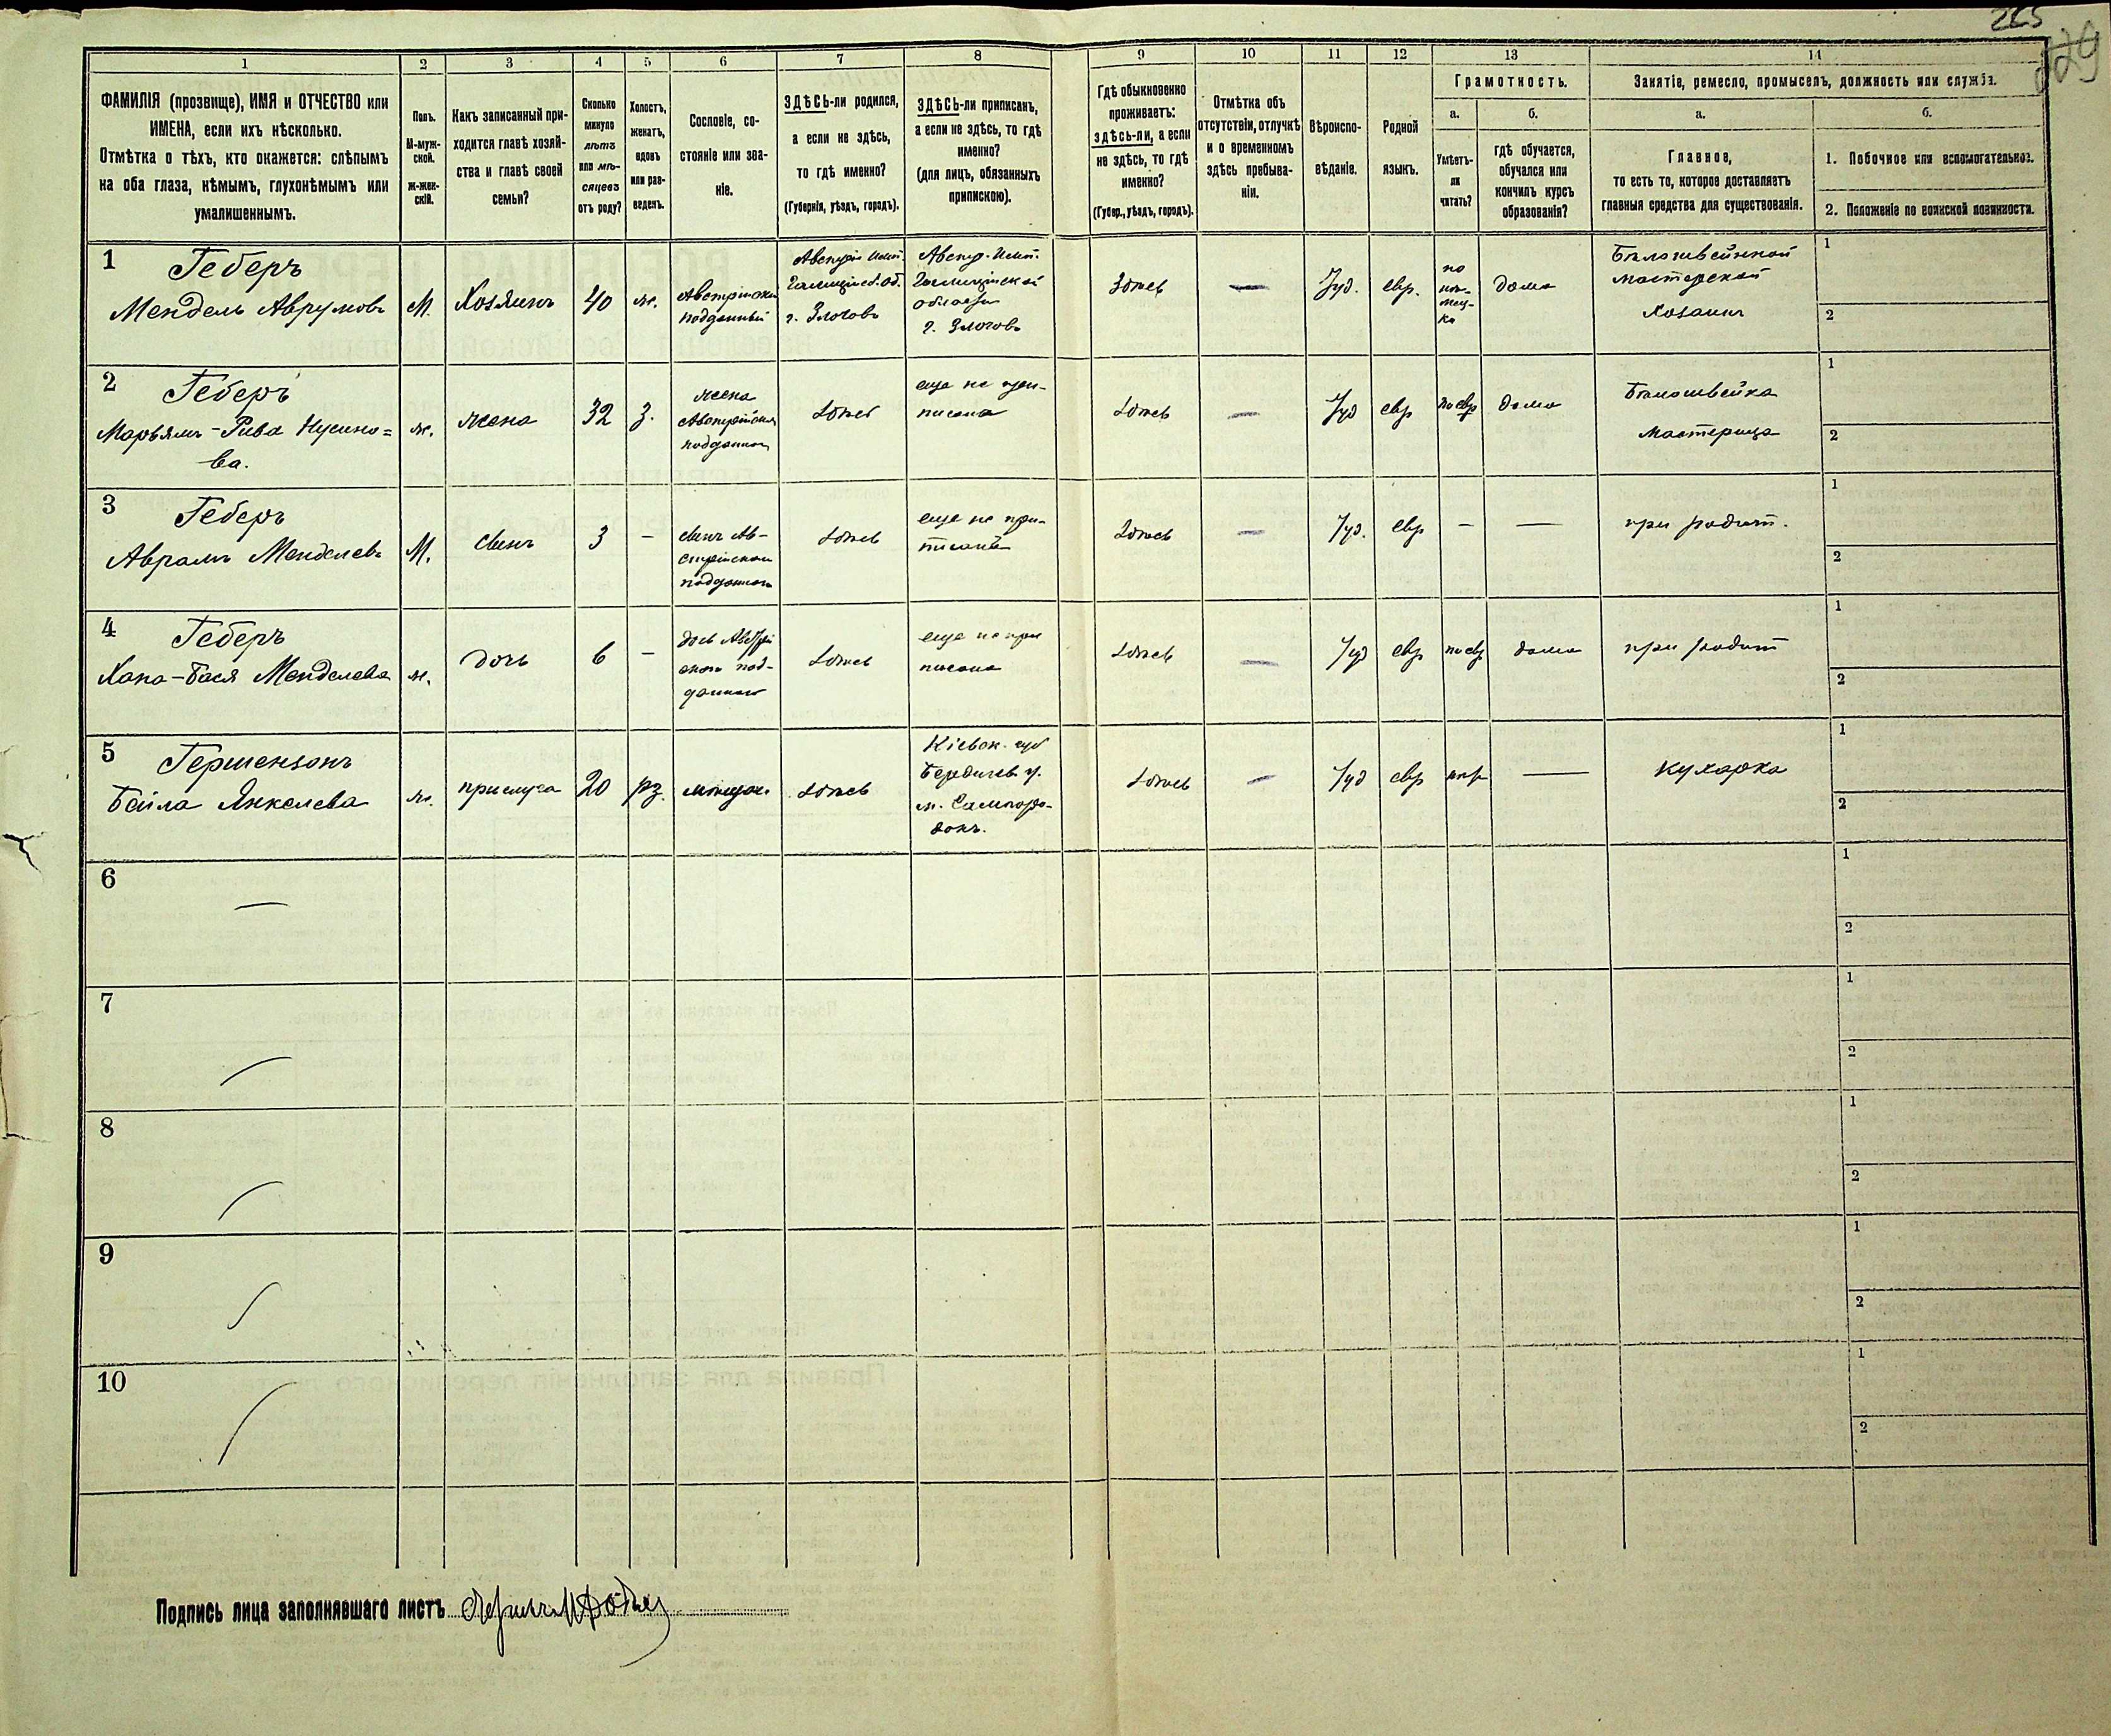 265
229
1
2
3
4
5
6
7
8
9
10
11
12
13
14
ФАМИЛІЯ (прозвище), ИМЯ и ОТЧЕСТВО или
ИМЕНА, если ихъ нѣсколько.
Отмѣтка о тѣхъ, кто окажется: слѣпымъ
на оба глаза, нѣмымъ, глухонѣмымъ или
умалишеннымъ.
Полъ.
М-муж-
ской.
ж-жен-
скій.
Какъ записанный при-
ходится главѣ хозяй-
ства и главѣ своей
семьи?
Сколько
минуло
лѣтъ
или мѣ-
сяцевъ
отъ роду?
Холостъ,
женатъ,
вдовъ
или раз-
веденъ.
Сословіе, со-
стояніе или зва-
ніе.
ЗДѢСЬ-ли родился,
а если не здѣсь,
то гдѣ именно?
(Губернія, уѣздъ, городъ).
ЗДѢСЬ-ли приписанъ,
а если не здѣсь, то гдѣ
именно?
(для лицъ, обязанныхъ
припискою).
Гдѣ обыкновенно
проживаетъ:
здѣсь-ли, а если
не здѣсь, то гдѣ
именно?
(Губер., уѣздъ, городъ).
Отмѣтка объ
отсутствіи, отлучкѣ
и о временномъ
здѣсь пребыва-
ніи.
Вѣроиспо-
вѣданіе.
Родной
языкъ.
Грамотность.
а.
Умѣетъ-
ли
читать?
б.
гдѣ обучается,
обучался или
кончилъ курсъ
образованія?
Занятіе, ремесло, промыселъ, должность или служба.
а.
Главное,
то есть то, которое доставляетъ
главныя средства для существованія.
б.
1. Побочное или вспомогательное.
2. Положеніе по воинской повинности.
1
Геберъ
Мендель Аврумовъ
М.
Хозяинъ
40
ж.
Австрійскій
подданный
Австрія Имп.
Галиційск. об.
г. Злочовъ
Австр. Имп.
Галиційской
области
г. Злочовъ
Здѣсь
—
Іуд.
евр.
по
нѣ-
мец-
ки
дома
Бѣлошвейной
мастерской
Хозаинъ
1
2
2
Геберъ
Марьямъ-Рива Нусино=
ва.
ж.
жена
32
з.
жена
Австрійскаго
подданнаго
здѣсь
еще не при-
писана
здѣсь
—
Іуд
евр
по евр
дома
Бѣлошвейка
мастерица
1
2
3
Геберъ
Аврамъ Менделевъ
М.
сынъ
3
-
сынъ Ав-
стрійскаго
подданнаго
здѣсь
еще не при-
писанъ
здѣсь
—
Іуд.
евр
-
—
при родит.
1
2
4
Геберъ
Хана-Бася Менделева
ж.
дочь
6
-
дочь Австрій
скаго под-
даннаго
здѣсь
еще не при
писана
здѣсь
—
Іуд
евр
по евр
дома
при родит
1
2
5
Гершензонъ
Бейла Янкелева
ж.
прислуга
20
рз.
мѣщан.
здѣсь
Кіевск. губ
Бердичев. у.
м. Самгоро-
докъ.
здѣсь
—
Іуд
евр
—
кухарка
1
2
6
—
1
2
7
1
2
8
1
2
9
1
2
10
1
2
Подпись лица заполнявшаго листъ